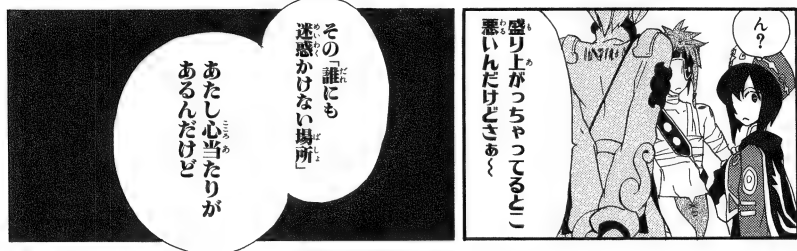 ん?
盛り上がっちゃってるとこ
悪いんだけどさぁ〜
その「誰にも
迷惑かけない場所」
あたし心当たりが
あるんだけど